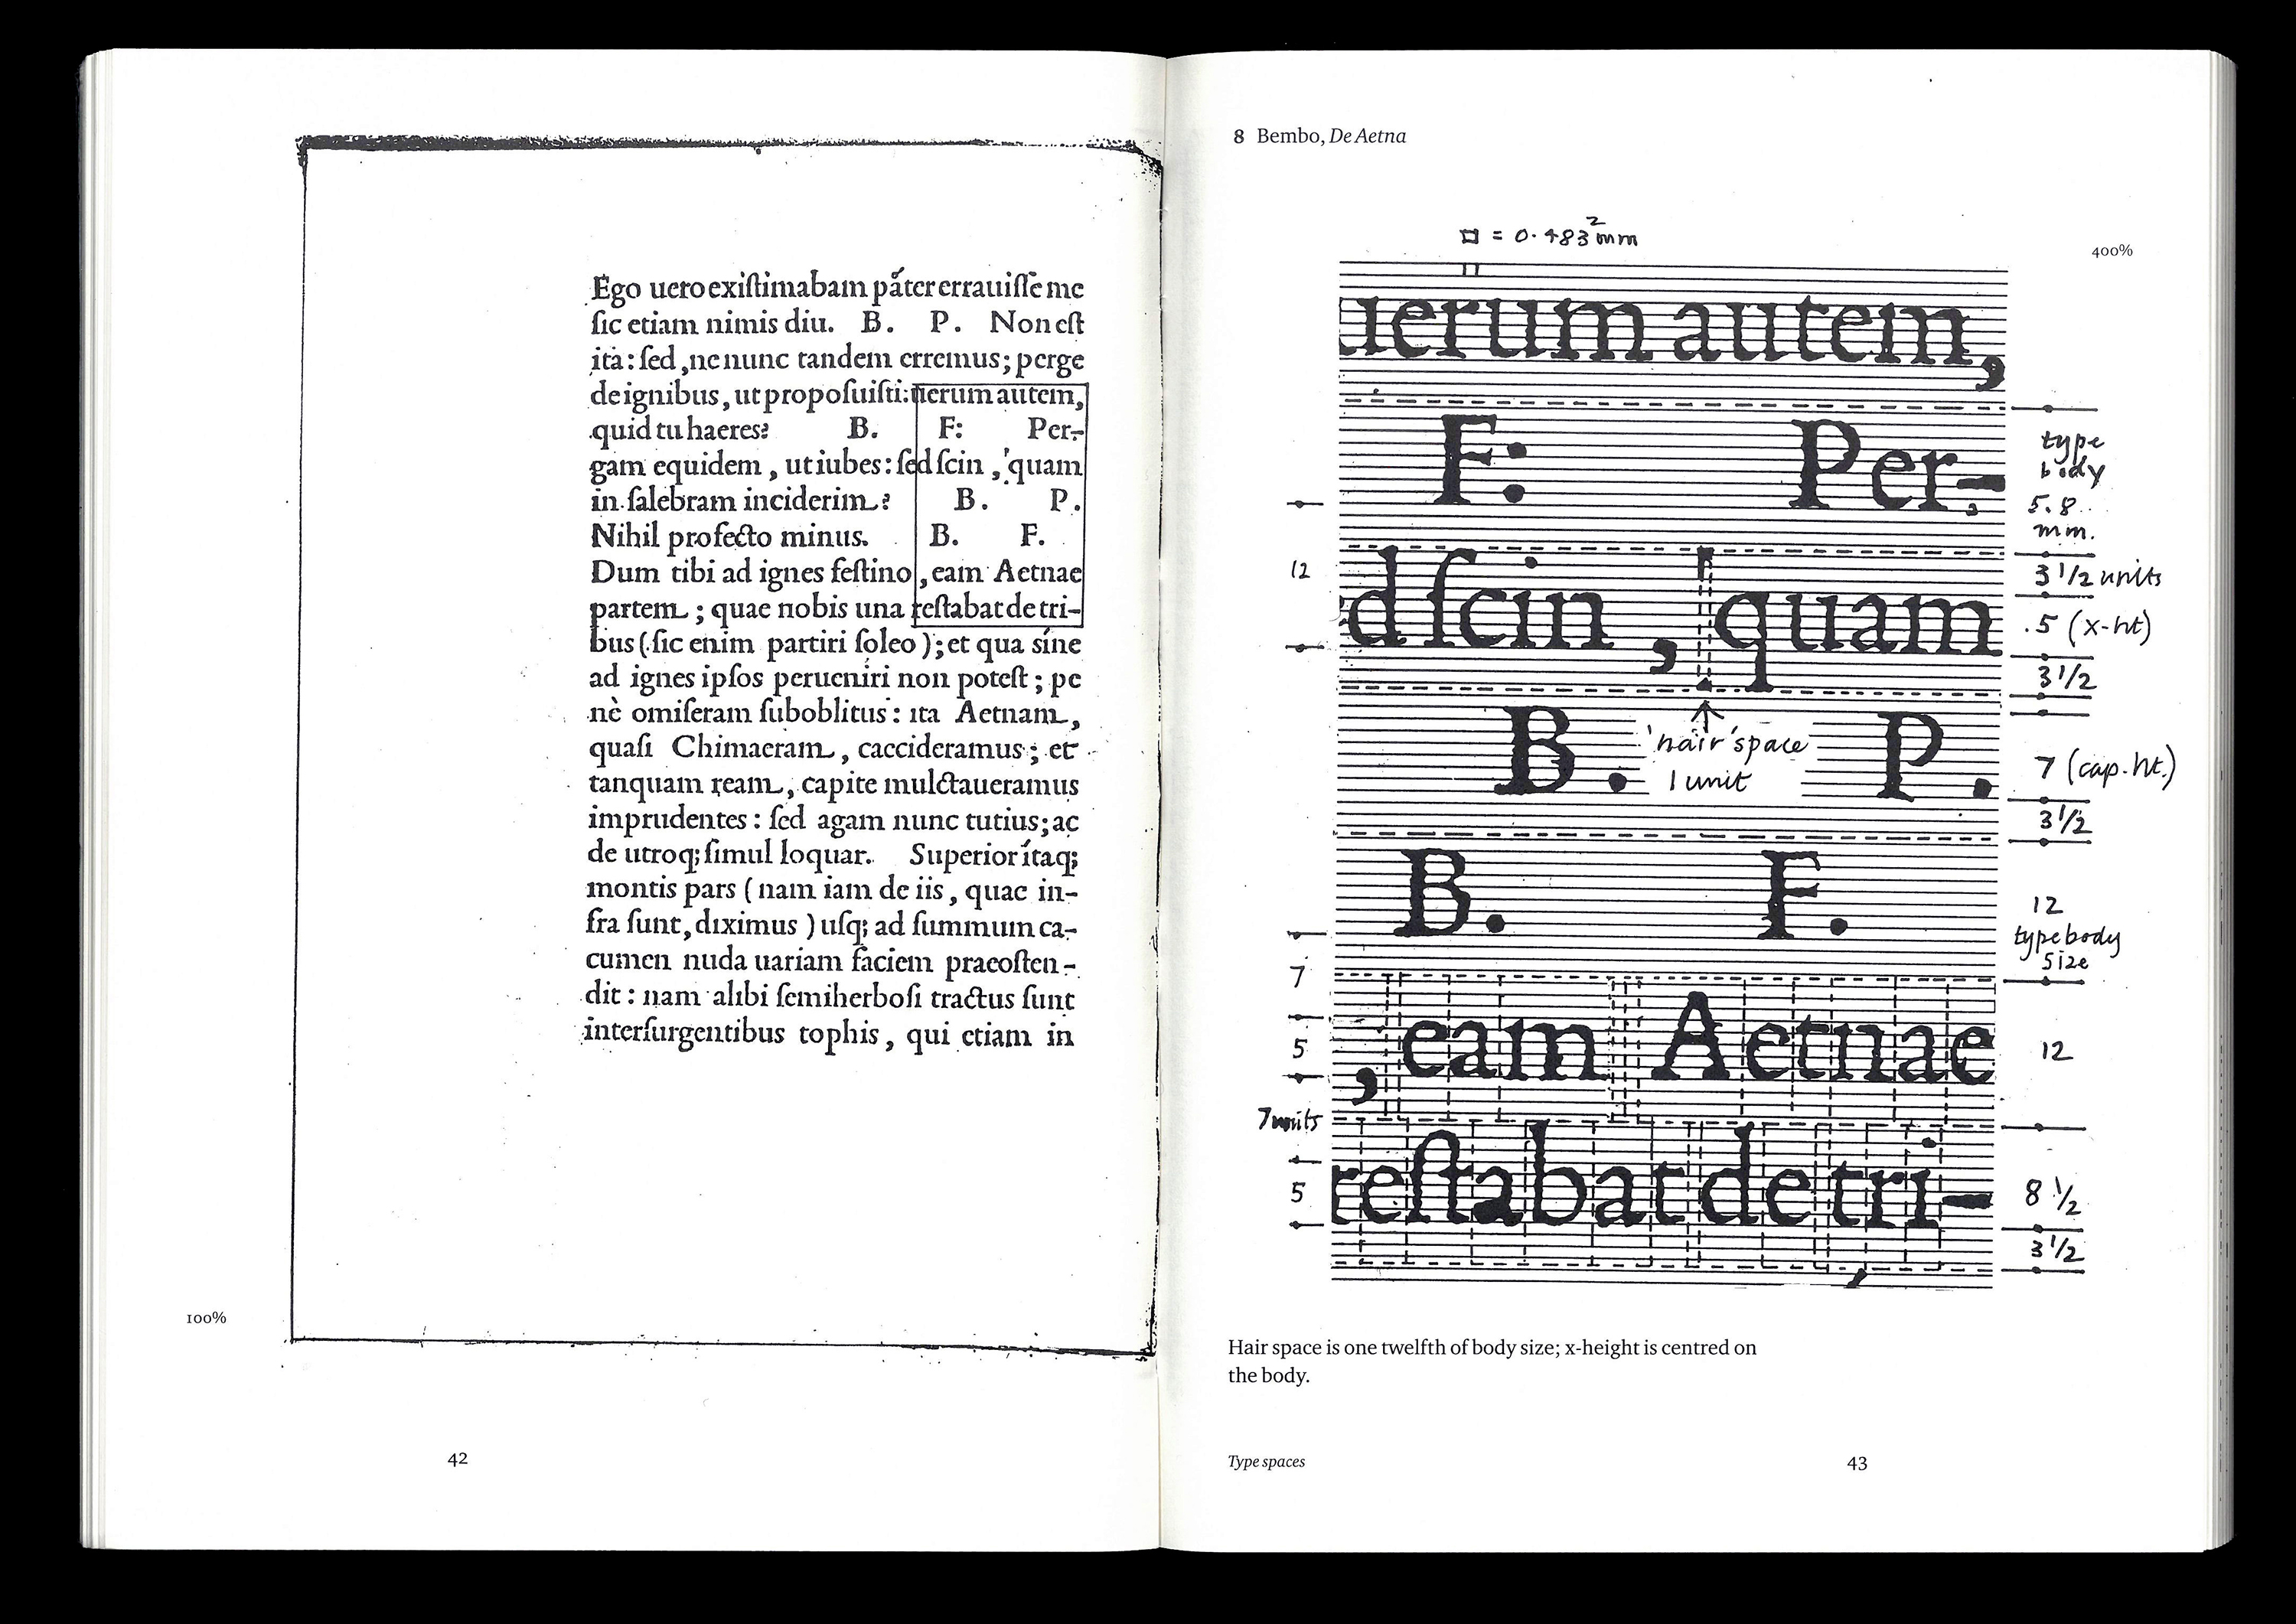 Ego uero exiſtimabam páter errauiſſe me
ſic etiam nimis diu. B. P. Non eſt
ita: ſed, ne nunc tandem erremus; perge
de ignibus, ut propoſuiſti: uerum autem,
quid tu haeres? B. F: Per-
gam equidem, ut iubes: ſed ſcin, quam
in ſalebram inciderim? B. P.
Nihil profecto minus. B. F.
Dum tibi ad ignes feſtino, eam Aetnae
partem; quae nobis una reſtabat de tri-
bus (ſic enim partiri ſoleo); et qua sine
ad ignes ipſos perueniri non poteſt; pe
nè omiſeram ſuboblitus: ita Aetnam,
quaſi Chimaeram, caecideramus; et
tanquam ream, capite mulctaueramus
imprudentes: ſed agam nunc tutius; ac
de utroq; ſimul loquar. Superior ítaq;
montis pars (nam iam de iis, quae in-
fra ſunt, diximus) uſq; ad ſummum ca-
cumen nuda uariam faciem praeoſten-
dit: nam alibi ſemiherboſi tractus ſunt
interſurgentibus tophis, qui etiam in
100%
42
8 Bembo, De Aetna
= 0.483² mm
400%
uerum autem,
F: Per-
type
body
5.8
mm.
12
d ſcin, quam
3 1/2 units
.5 (x-ht)
3 1/2
B. P.
'hair' space
1 unit
7 (cap. ht.)
3 1/2
B. F.
12
type body
size
7
, eam Aetnae
5
12
7 units
reſtabat de tri-
5
8 1/2
3 1/2
Hair space is one twelfth of body size; x-height is centred on
the body.
Type spaces
43